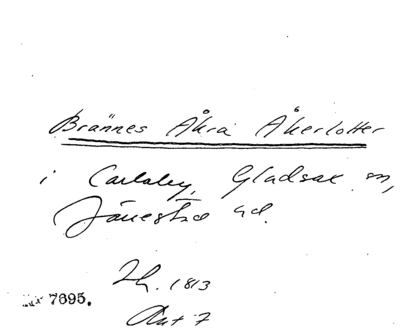 Brännes Åkra Åkerlotter
i Carlaby, Gladsax sn,
Järrestad hd.
Jb. 1813
7695.
Ant 7